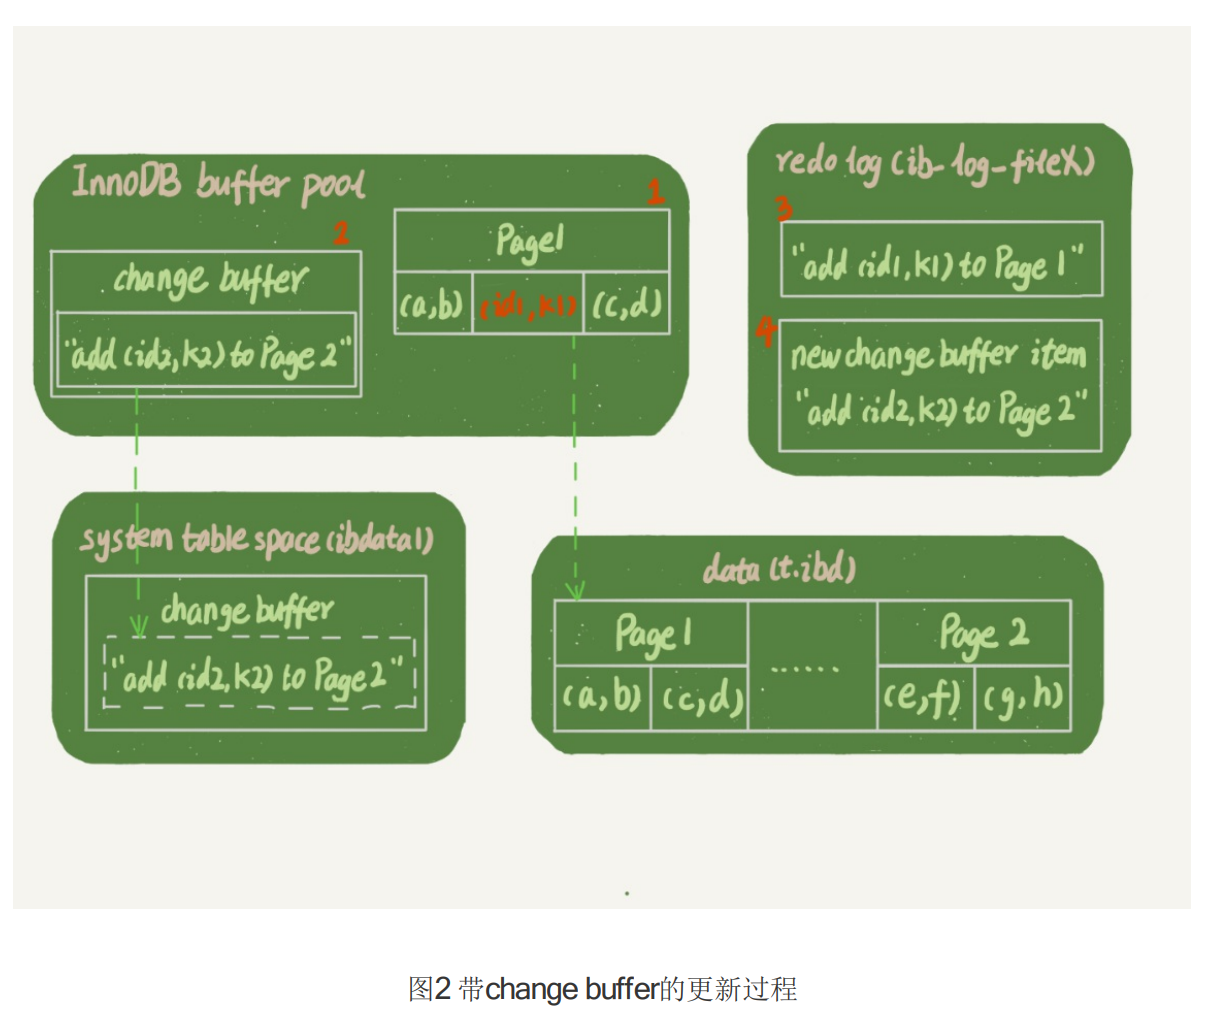 InnoDB buffer pool
1
2
Page1
change buffer
(a,b) (id1,k1) (c,d)
"add (id2,k2) to Page 2"
redo log (ib_log_fileX)
3
"add (id1,k1) to Page 1"
4
new change buffer item
"add (id2,k2) to Page 2"
system table space (ibdata1)
change buffer
"add (id2,k2) to Page2"
data (t.ibd)
Page1 ...... Page 2
(a,b) (c,d) (e,f) (g,h)
图2 带change buffer的更新过程